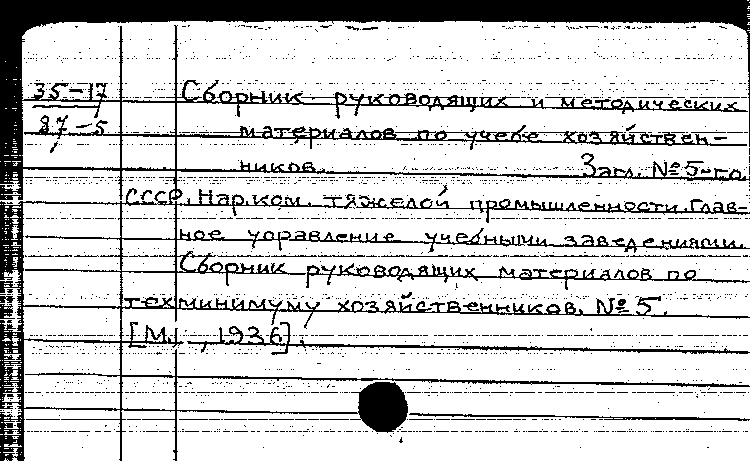 35-17
87-5
Сборник руководящих и методических
материалов по учебе хозяйствен-
ников. Загл. №5-го
СССР. Нар.ком. тяжелой промышленности. Глав-
ное управление учебными заведениями.
Сборник руководящих материалов по
техминимуму хозяйственников. №5.
[М., , 1936].